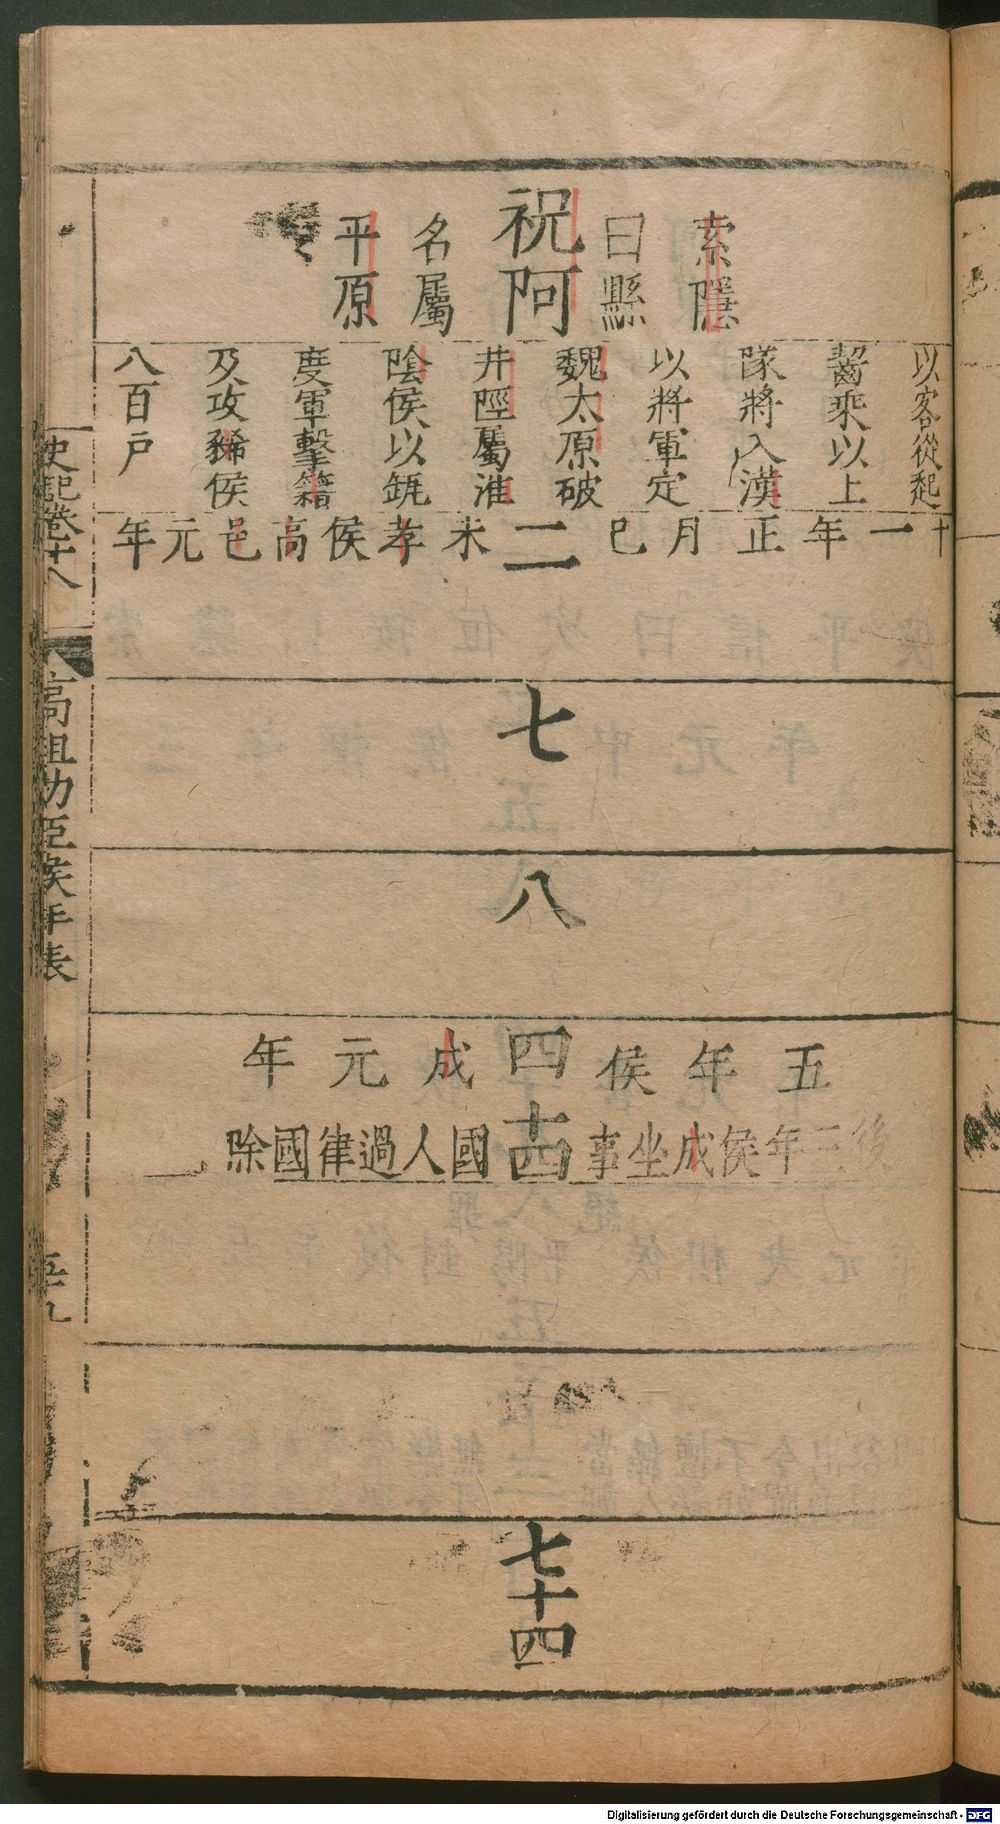 索隱
曰縣
祝阿
名屬
平原
以客從起
齧乘以上
隊將入漢
以將軍定
魏太原破
井陘屬淮
陰侯以缻
度軍擊籍
及攻豨侯
八百戶
十一年正月巳
二
未孝侯高邑元年
七
八
五年侯
四
成元年
後三年侯成坐事
十四
國人過律國除
七十四
史記卷十八
高祖功臣侯年表
五十九
Digitalisierung gefördert durch die Deutsche Forschungsgemeinschaft - DFG